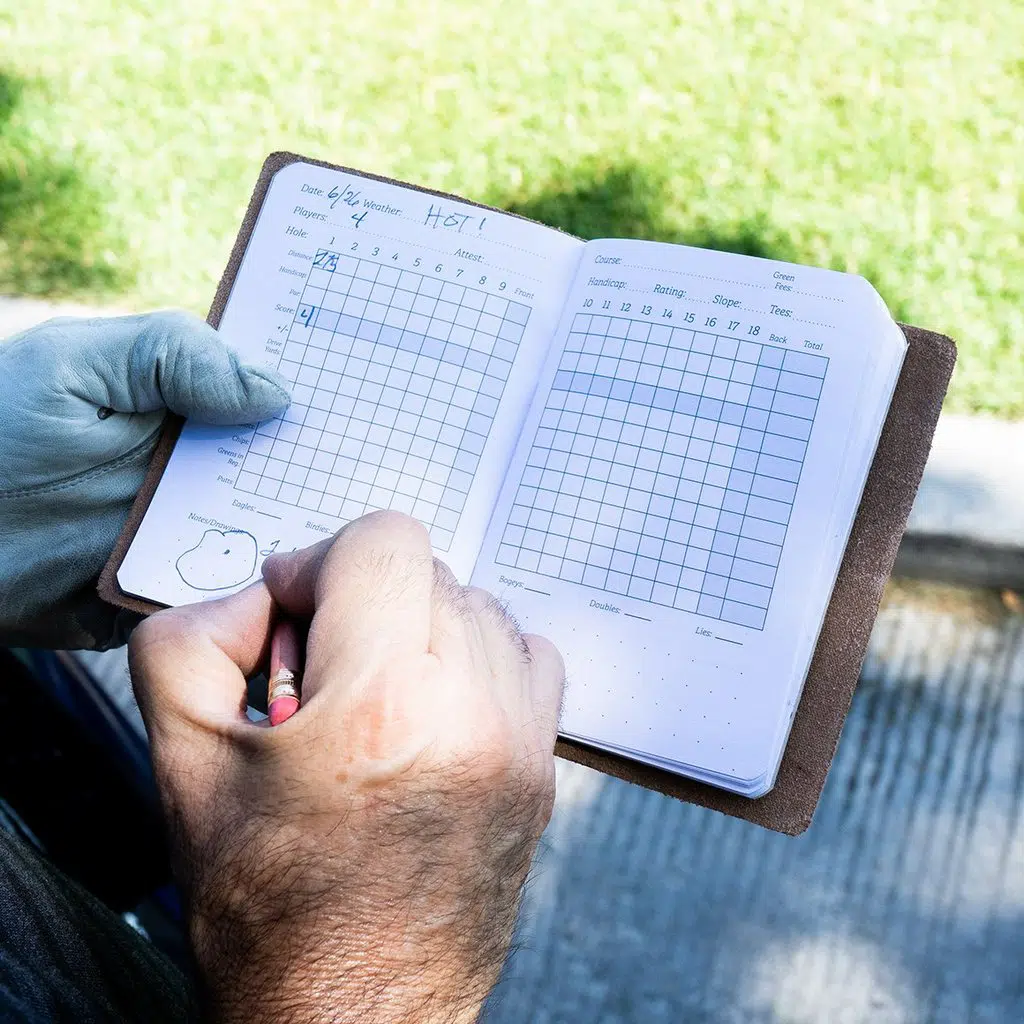 Date: 6/26 Weather: HOT!
Players: 4 Attest:
Hole: 1 2 3 4 5 6 7 8 9 Front
Distance:
Handicap:
Par:
Score: 4
+/-
Drive
Yards:
Chips:
Greens in
Reg:
Putts:
Eagles: Birdies:
Notes/Drawings
Course: Green
Fees:
Handicap: Rating: Slope: Tees:
10 11 12 13 14 15 16 17 18 Back Total
Bogeys: Doubles: Lies: